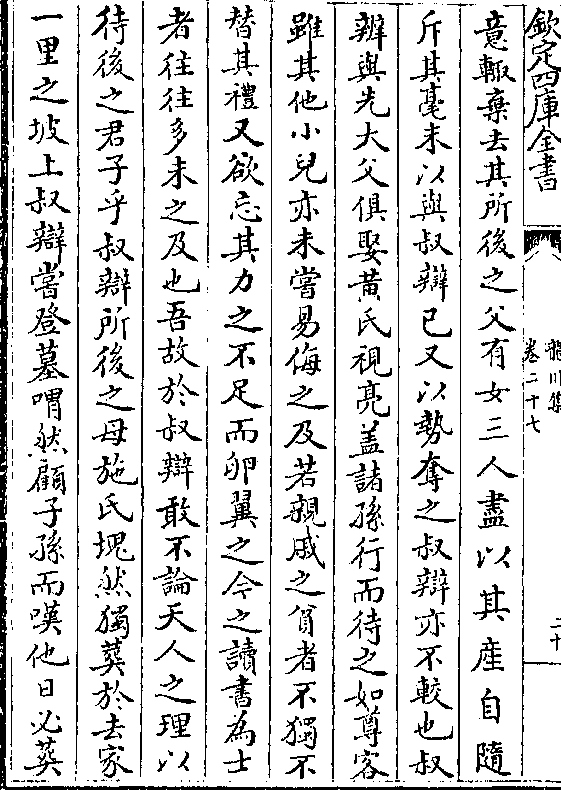 欽定四庫全書
龍川集
卷二十七
二十
意輙棄去其所後之父有女三人盡以其産自隨
斥其毫末以與叔辯已又以勢奪之叔辯亦不較也叔
辯與先大父俱娶黄氏視亮盖諸孫行而待之如尊客
雖其他小兒亦未嘗易侮之及若親戚之貧者不獨不
替其禮又欲忘其力之不足而卵翼之今之讀書為士
者往往多未之及也吾故於叔辯敢不論天人之理以
待後之君子乎叔辯所後之母施氏塊然獨葬於去家
一里之坡上叔辯嘗登墓喟然顧子孫而嘆他日必葬